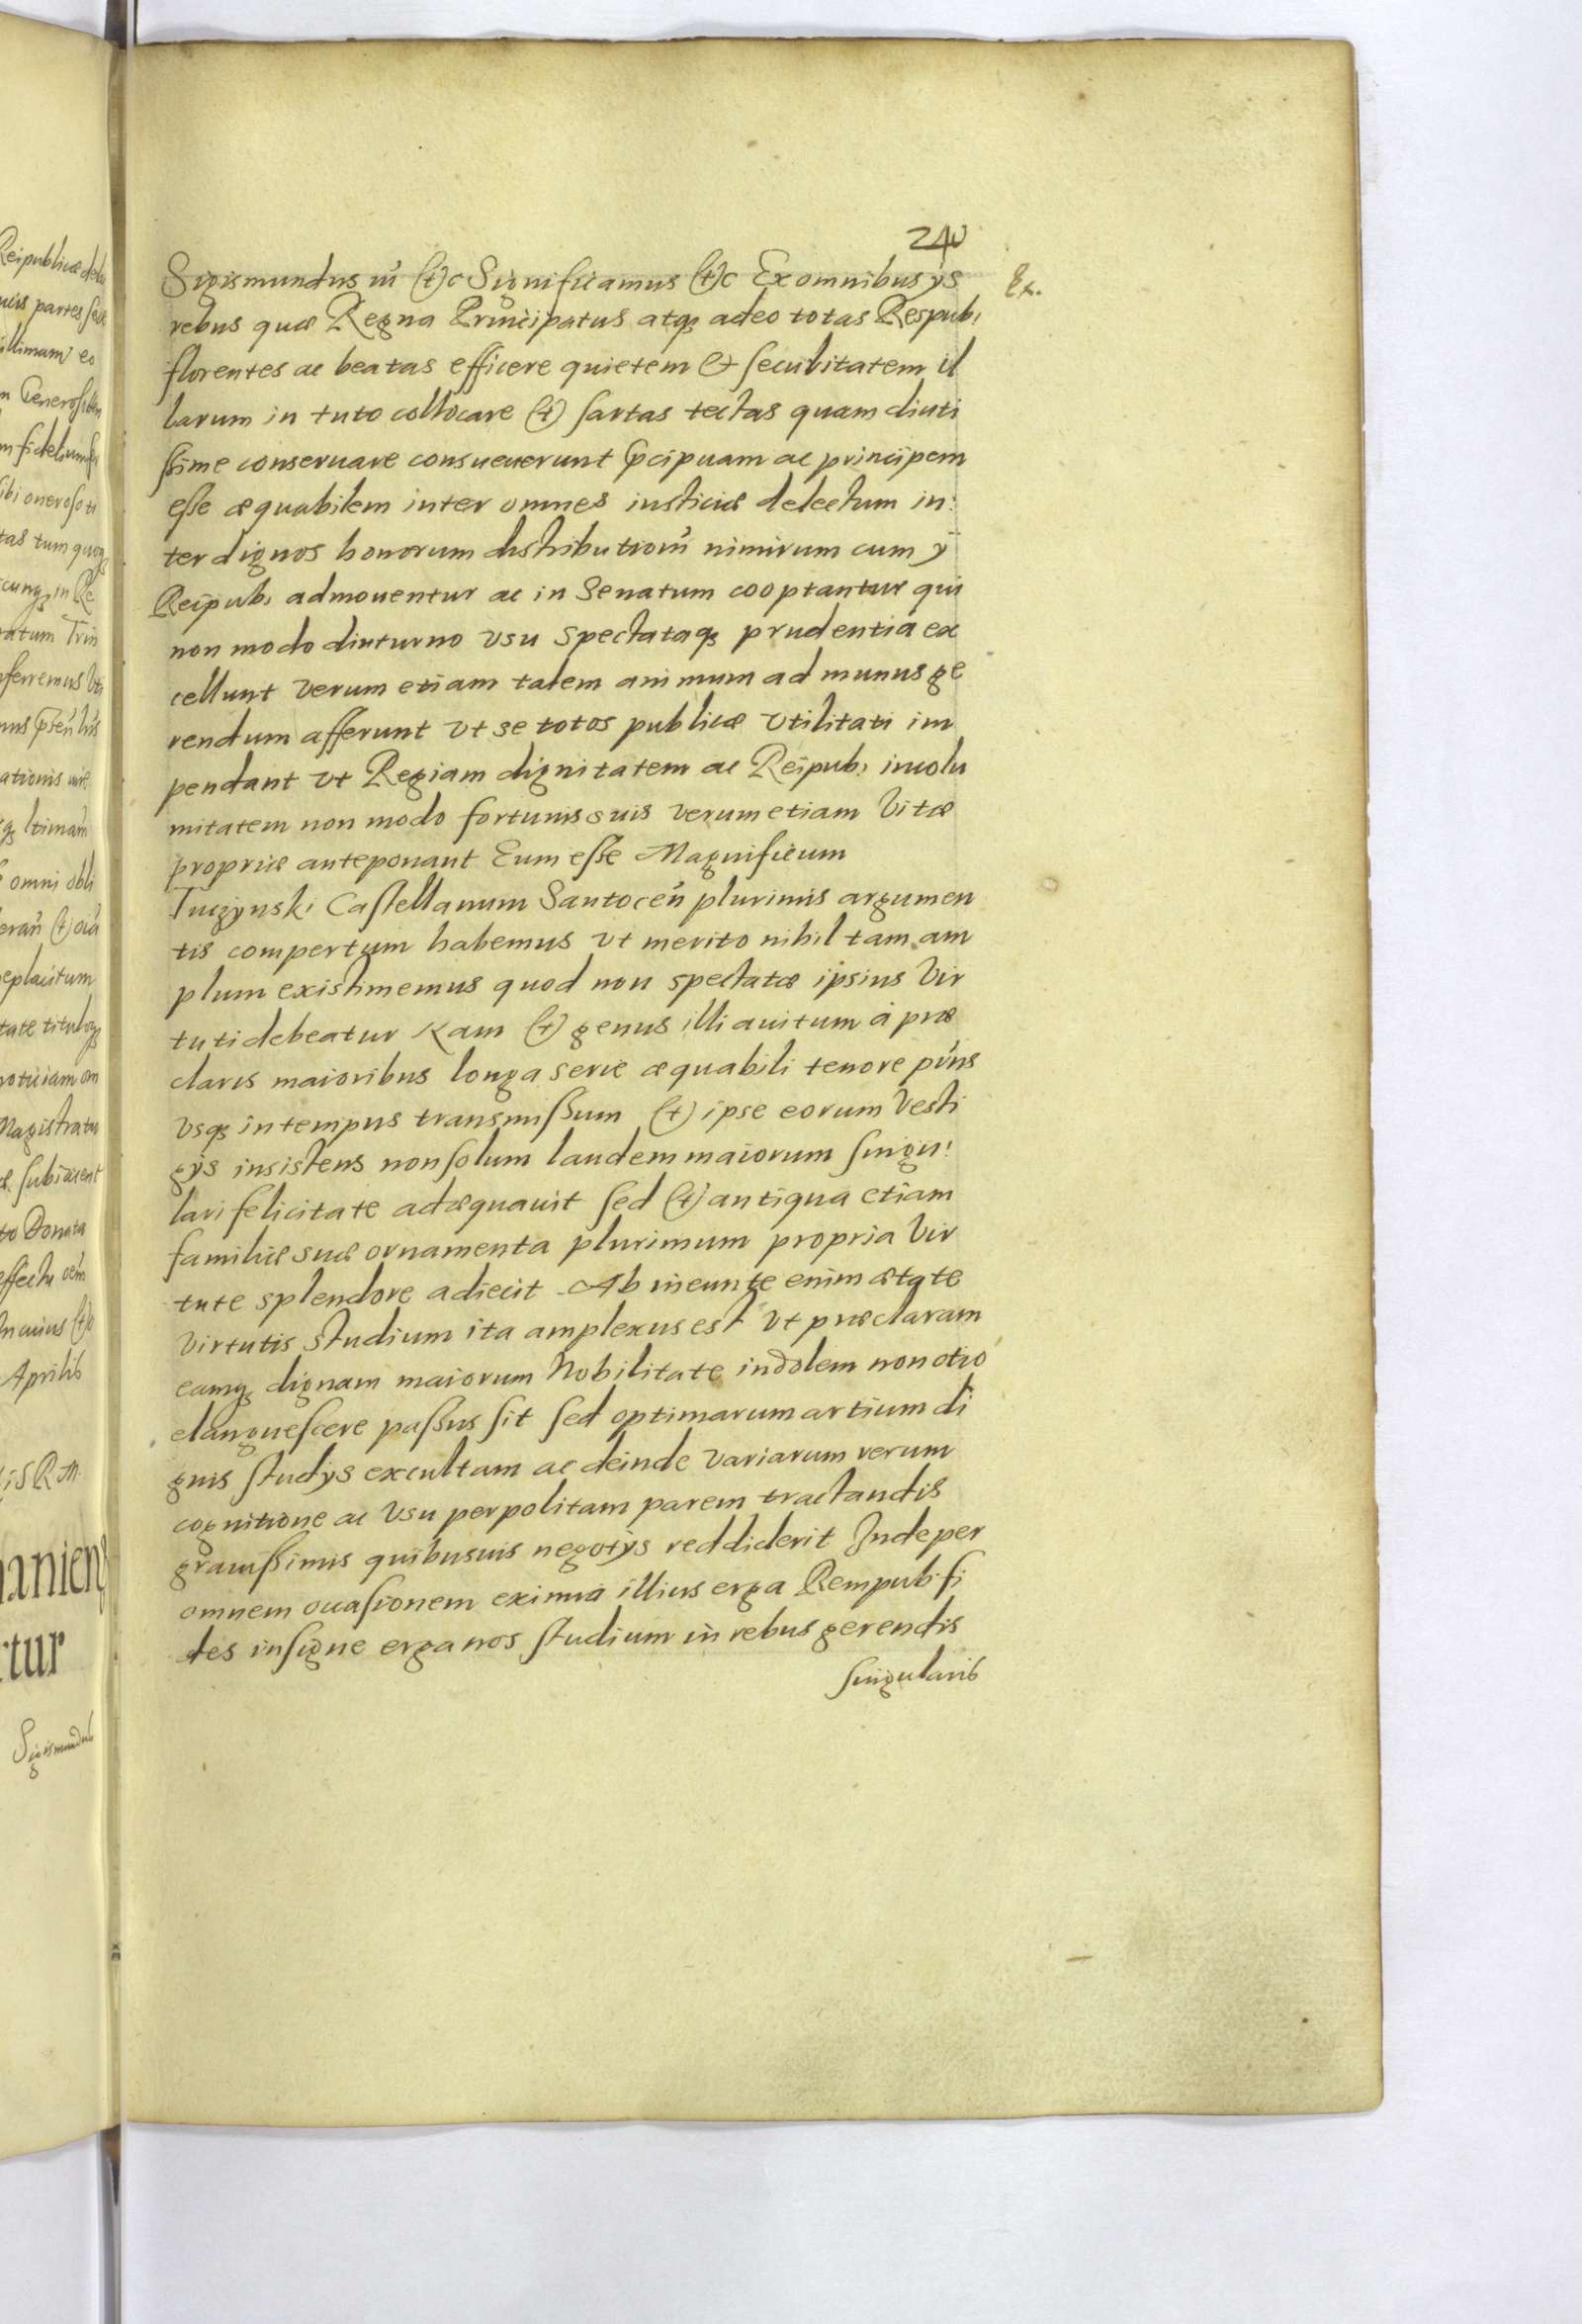 240
Sigismundus iii (et)c Significamus (et)c Ex omnibus ys
Ex.
rebus quæ Regna Principatus atq3 adeo totas Respub:
florentes ac beatas efficere quietem & securitatem il
larum in tuto collocare (et) sartas tectas quam diuti
ssime conseruare consueuerunt p̄cipuam ac principem
esse æquabilem inter omnes iusticiæ delectum in:
ter dignos honorum distributiom̄ nimirum cum y
Reipub: admouentur ac in Senatum cooptantur qui
non modo diuturno vsu spectataq3 prudentiá ex
cellunt verum etiam talem animum ad munus ge
rendum afferunt vt se totos publicæ vtilitati im
pendant vt Regiam dignitatem ac Reipub: incolu
mitatem non modo fortunis suis verum etiam vitæ
propriæ anteponant Eum esse Magnificum
Tuczynski Castellanum Santoceń plurimis argumen
tis compertum habemus vt merito nihil tam am
plum existimemus quod non spectatæ ipsius vir
tuti debeatur Nam (et) genus illi auitum á præ
claris maioribus longa serie æquabili tenore pn̄s
vsq3 in tempus transmissum (et) ipse eorum vesti
gÿs insistens non solum laudem maiorum singu:
lari felicitate adæquauit sed (et) antiqua etiam
familiæ suæ ornamenta plurimum propria vir
tute splendore adiecit Ab ineunte enim ætate
virtutis studium ita amplexus est vt præclaram
eamq3 dignam maiorum Nobilitate indolem non otio
elanguescere passus sit sed optimarum artium di
gnis studÿs excultam ac deinde variarum rerum
cognitione ac vsu perpolitam parem tractandis
grauissimis quibusuis negotÿs reddiderit Inde per
omnem occasionem eximia illius erga Rempub: fi
des insigne erga nos studium in rebus gerendis
singularis